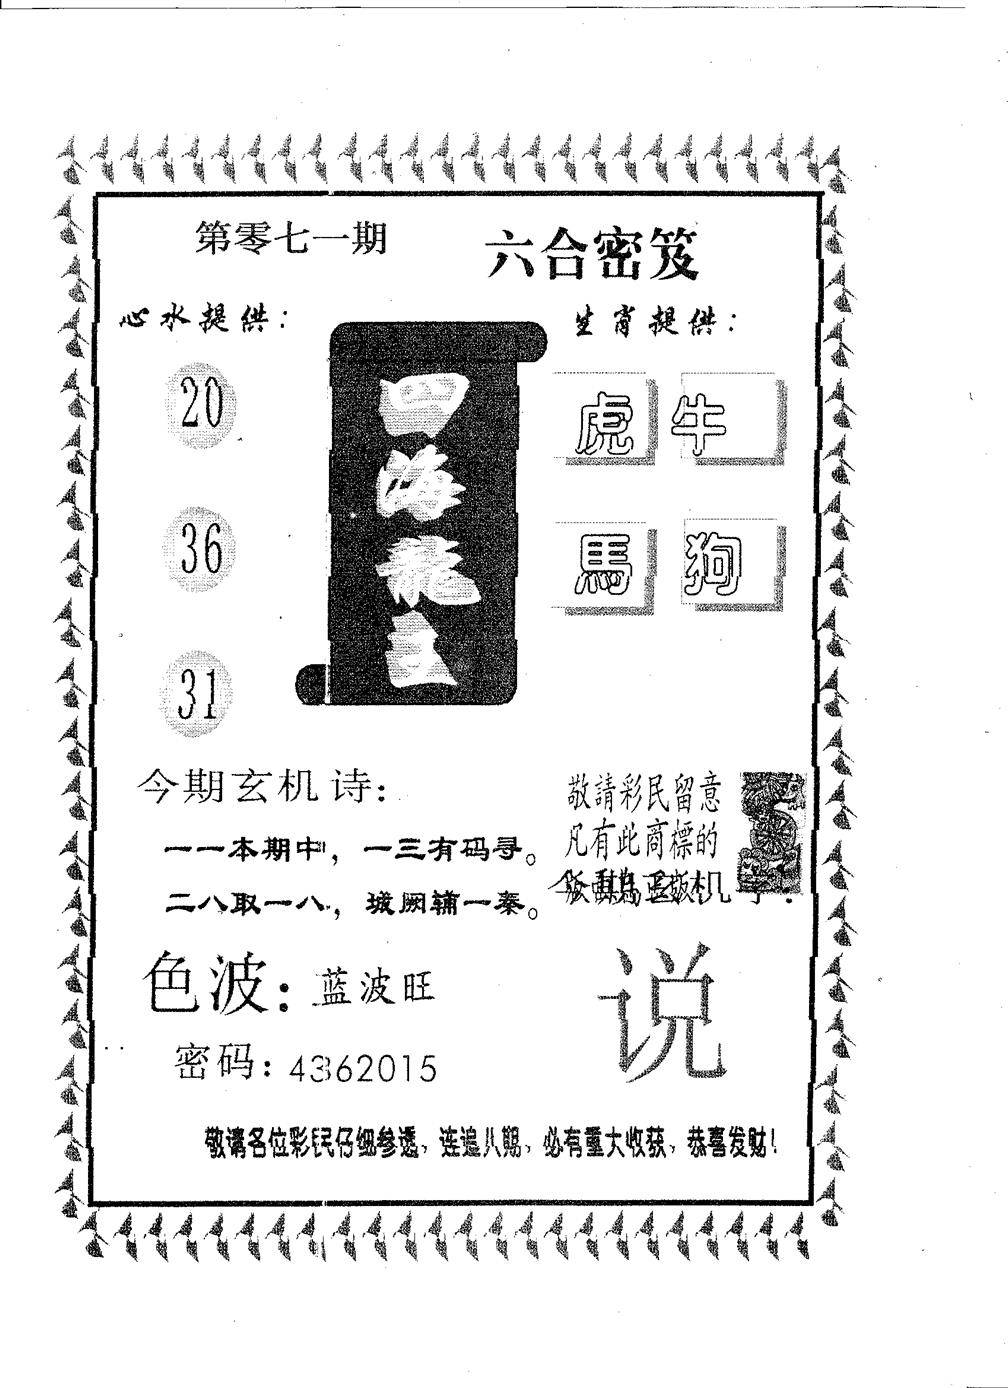 第零七一期
六合密笈
心水提供：
20
36
31
生肖提供：
虎 牛
馬 狗
今期玄机诗：
一一本期中，一三有码寻。
二八取一八，城阙辅一秦。
敬請彩民留意
凡有此商標的
色波：蓝波旺
密码：4362015
说
敬请各位彩民仔细参透，连追八期，必有重大收获，恭喜发财！